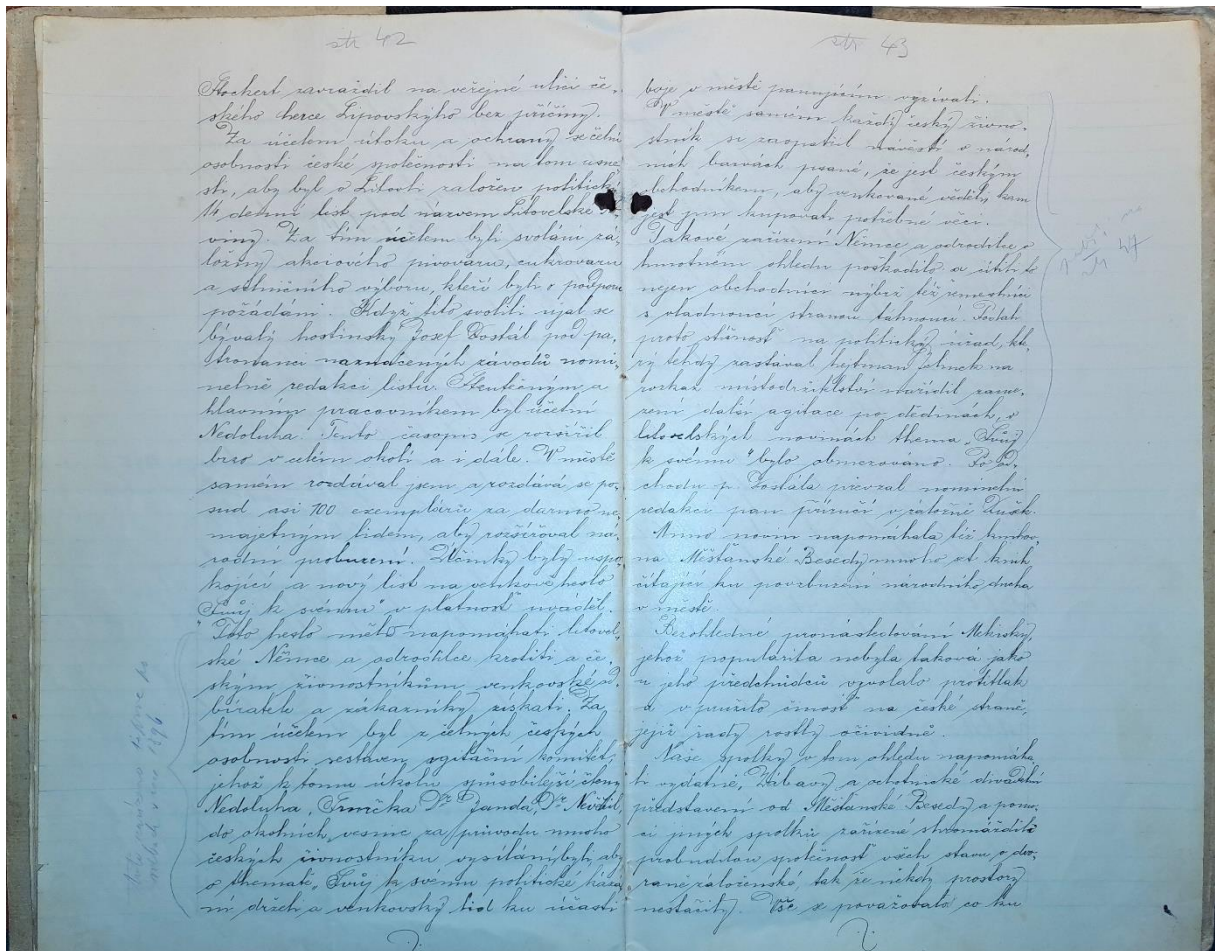 str 42
Stockert zavraždil na veřejné ulici če-
ského herce Lipovskýho bez příčiny.
Za účelem útoku a ochrany se čelní
osobnosti české společnosti na tom usne-
sli, aby byl v Litovli založen politický
14 denní list pod názvem Litovelské No-
viny. Za tím účelem byli svoláni zá-
ložny akciového pivovaru, cukrovaru
a silničního výboru, kteří byli o podporu
požádáni. Když tito svolili ujal se
bývalý hostinský Josef Dostál pod pa-
tronanci naznačených závodů nomi-
nelně redakci listu. Skutečným a
hlavním pracovníkem byl účetní
Nedoluha. Tento časopis se rozšířil
brzo v celém okolí a i dále. V městě
samém rozdával jsem a rozdává se po-
sud asi 100 exemplárů za darmo ne-
majetným lidem, aby rozšířoval ná-
rodní probuzení. Účinky byly uspo-
kojící a nový list na venkově heslo
"Svůj k svému" v platnost uváděl.
Toto heslo mělo napomáhati litovel-
ské Němce a odrodilce krotiti a če-
ským živnostníkům venkovské od-
běratele a zákazníky získati. Za
tím účelem byl z čelných českých
osobností sestaven agitační komitét,
jehož k tomu úkolu způsobilejší členy
Nedoluha, Smrčka Dr Janda, Dr
do okolních vesnic za průvodu mnoho
českých živnostníku vysíláni byli, aby
o thematě "Svůj k svému politické káza-
ní drželi a venkovský lid ku účasti
str 43
boje v městě panujícím vyzívati.
V městě samém každý český živno-
stník si zaopatřil návěstí v národ-
ních barvách psané, že jest českým
obchodníkem, aby venkované věděli, kam
jest jim kupovati potřebné věci.
Takové zařízení Němce a odrodilce v
hmotném ohledu poškodilo a útih to
nejen obchodníci nýbrž též řemeslníci
s vladnoucí stranou táhnoucí. Podali
proto stížnost na politický úřad, kte-
rý tehdy zastával hejtman Jelínek na
rozkaz místodržitelství nařídil zame-
zení další agitace po dědinách, v
litovelských novinách thema "Svůj
k svému" bylo obmezováno. Po od-
chodu p. Dostála převzal nominelní
redakci pan příručí v záložně Dušek.
Mimo novin napomáhala též knihov-
na Měšťanské Besedy mnoho set knih
čítající ku povzbuzení národního ducha
v městě.
Bezohledné pronásledování
jehož popularita nebyla taková jako
u jeho předchůdců vyvolalo protitlak
a v pružilo činost na české straně,
jejíž rady rostly očividně.
Naše spolky v tom ohledu napomáha-
li vydatně, Zábavy a ochotnické divadelní
představení od Měšťanské Besedy a pomo-
ci jiných spolků zařízené shromáždilo
probudilou společnost všech stavu v dvo-
raně záloženské, tak že někdy prostory
nestačily. Vše se považovalo co ku
47
1896